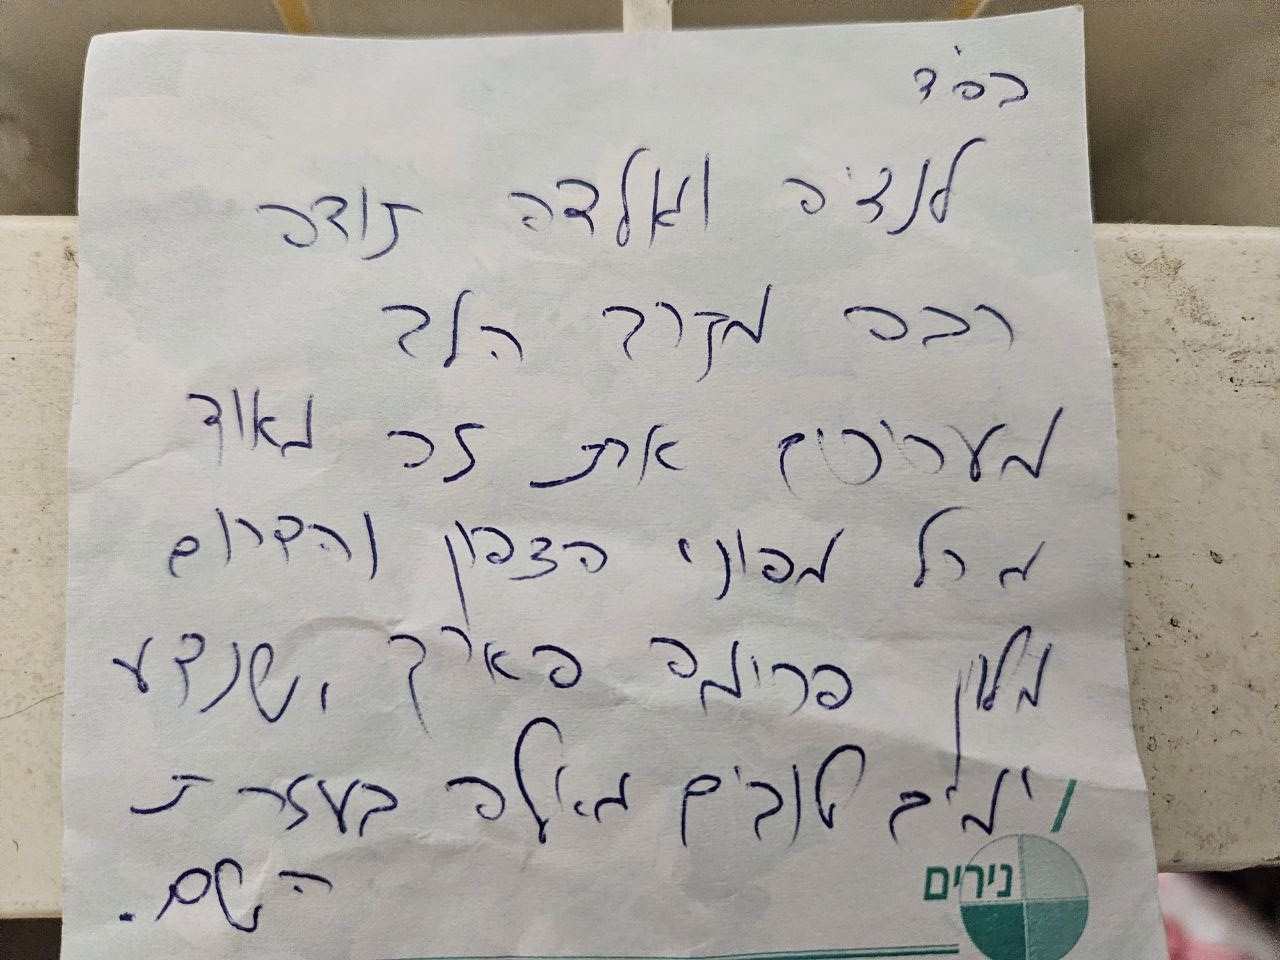 בס"ד
לנציה ואלדה תודה
רבה מקרב הלב
מעריכים את זה מאוד
מכל מפוני הצפון והדרום
מלון פרימה פארק, שנדע
ימים טובים מאלה בעזרת
השם.
נירים